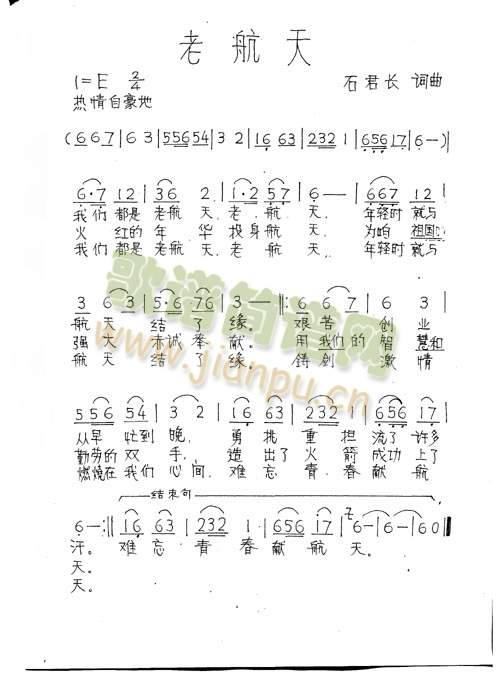 老航天
1=E 2/4 石君长 词曲
热情自豪地
(667|63|556554|32|16 63|232 1|65617|6—)|
6·7 12|36 2|1·2 57|6—|667 12|
我们都是老航天,老航天,年轻时就与
火红的年华投身航天,为咱祖国
我们都是老航天,老航天,年轻时就与
3 63|5·6 76|3—|:6 67|6 3|
航天结了缘。艰苦创业
强大赤诚奉献。用我们的智慧和
航天结了缘。铸剑激情
556 54|3 2|16 63|232 1|656 17|
从早忙到晚,勇挑重担流了许多
勤劳的双手,造出了火箭成功上了
燃烧在我们心间,难忘青春献航
结束句
6—:|16 63|232 1|656 17|6—|6—|60‖
汗。难忘青春献航天。
天。
天。
歌谱简谱网
www.jianpu.cn